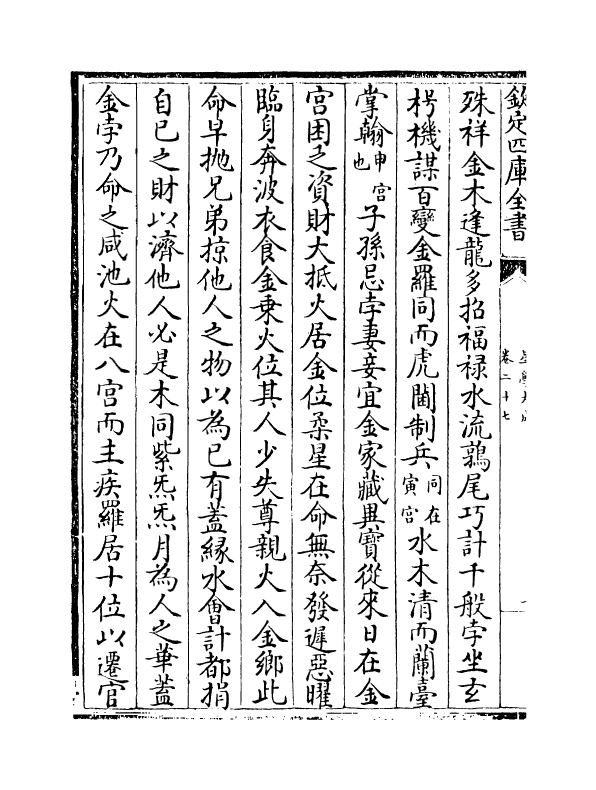 欽定四庫全書
卷二十七
殊祥金木逢龍多招福禄水流鶉尾巧計千般孛坐玄
枵機謀百變金羅同而虎閫制兵同在寅宫水木清而蘭臺
掌翰申宫也子孫忌孛妻妾宜金家藏異寶從來日在金
宫困乏資財大抵火居金位柔星在命無奈發遲惡曜
臨身奔波衣食金乗火位其人少失尊親火入金鄉此
命早抛兄弟掠他人之物以為已有蓋縁水會計都捐
自已之財以濟他人必是木同紫炁炁月為人之華蓋
金孛乃命之咸池火在八宫而主疾羅居十位以遷官